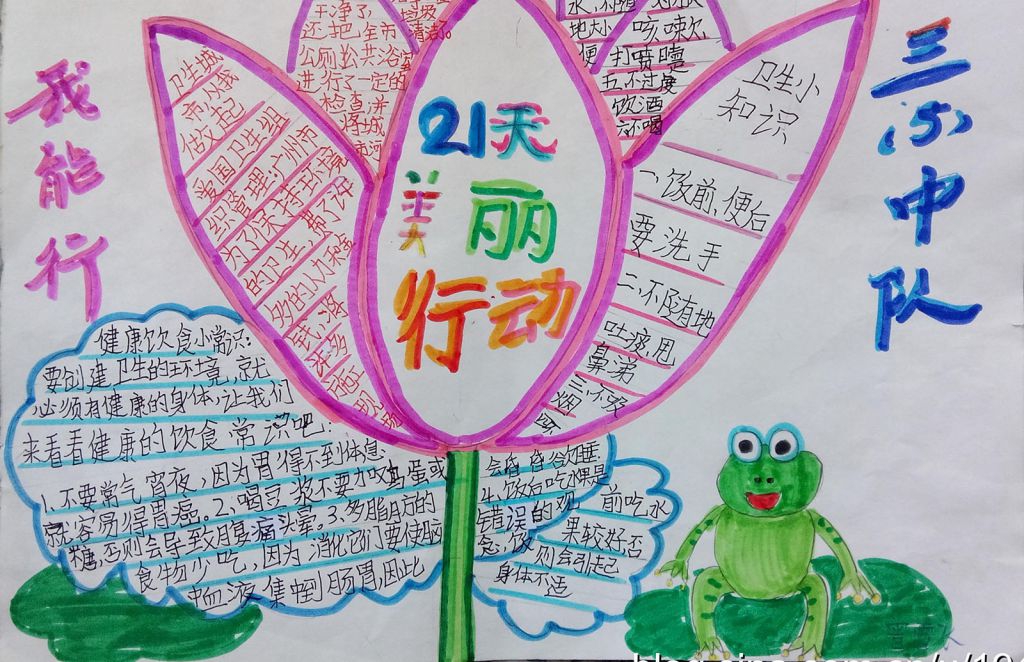 我能行
三(5)中队
21天
美丽
行动
卫生城
市从我
做起
爱国卫生组
织管理:广州市
为了保持环境
的卫生,费了许
多的人力和金
钱,将
许多
干净了,垃圾
还把全市
清洁。
公厕公共浴室
进行了一定的
检查,并
将城
市河
水,不随
地大小
便
咳,嗽、
打喷嚏
五、不过度
饮酒
六、不喝
卫生小
知识
一、饭前,便后
要洗手
二、不随地
吐痰,甩
鼻涕
三、不吸
烟
健康饮食小常识:
要创建卫生的环境,就
必须有健康的身体,让我们
来看看健康的饮食常识吧:
1、不要常气宵夜,因为胃得不到休息,
就容易得胃癌。2、喝豆浆不要加鸡蛋或
糖,否则会导致腹痛头晕。3、多脂肪的
食物少吃,因为消化它们要使脑
中血液集中到肠胃,因此
会昏昏欲睡
4、饭后吃水果是
错误的观
念,饭
前吃水
果较好否
则会引起
身体不适